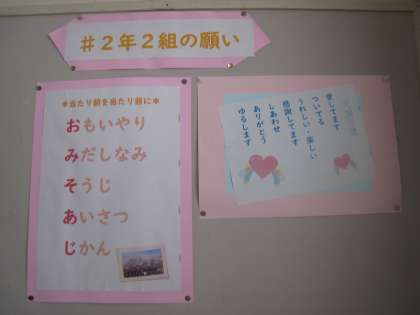 #2年2組の願い
*当たり前を当たり前に*
おもいやり
みだしなみ
そうじ
あいさつ
じかん
愛してます
ついてる
うれしい・楽しい
感謝してます
しあわせ
ありがとう
ゆるします